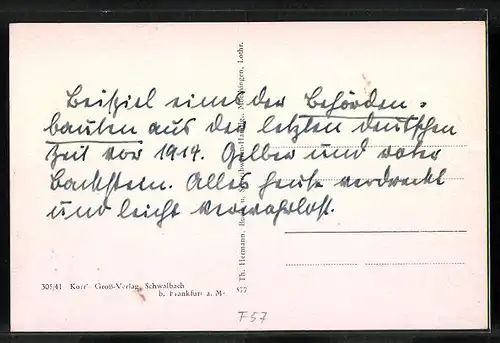 Beispiel eines der Behörden=
bauten aus der letzten deutschen
Zeit vor 1914. Gelber und roter
Backstein. Alles heute verdreckt
und leicht verwahrlost.
305/41 Korr' Groß-Verlag, Schwalbach
b. Frankfurt a. M.
Th. Hermann, u. Mörchingen, Lothr.
577
F 57